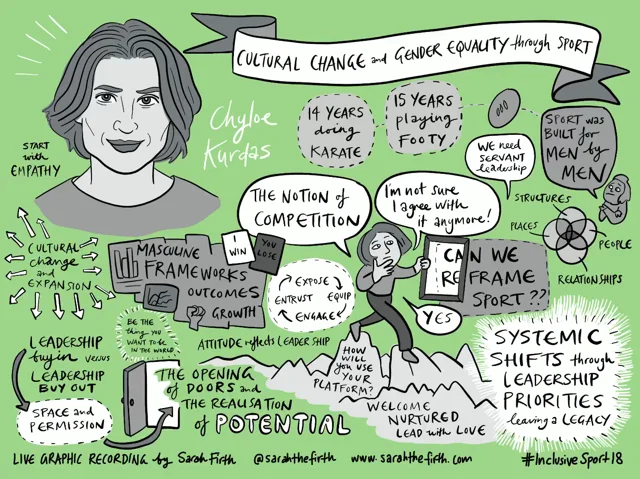 CULTURAL CHANGE and GENDER EQUALITY through SPORT
Chyloe
Kurdas
START
with
EMPATHY
14 YEARS
doing
KARATE
15 YEARS
playing
FOOTY
WE need
SERVANT
leadership
SPORT was
BUILT for
MEN by
MEN
THE NOTION of
COMPETITION
I'm not sure
I agree with
it anymore!
STRUCTURES
PLACES
PEOPLE
RELATIONSHIPS
CULTURAL
change
and
EXPANSION
MASCULINE
FRAMEWORKS
OUTCOMES
GROWTH
I
WIN
YOU
LOSE
EXPOSE
ENTRUST
EQUIP
ENGAGE
CAN WE
REFRAME
SPORT??
YES
BE THE
thing YOU
WANT TO be
IN THE WORLD
ATTITUDE reflects LEADERSHIP
LEADERSHIP
buy in versus
LEADERSHIP
BUY OUT
SPACE and
PERMISSION
THE OPENING
of DOORS and
THE REALISATION
of POTENTIAL
HOW
WILL
YOU USE
YOUR
PLATFORM?
WELCOME
NURTURED
LEAD with LOVE
SYSTEMIC
SHIFTS through
LEADERSHIP
PRIORITIES
leaving a LEGACY
LIVE GRAPHIC RECORDING by Sarah Firth @sarahthefirth www.sarahthefirth.com #InclusiveSport18